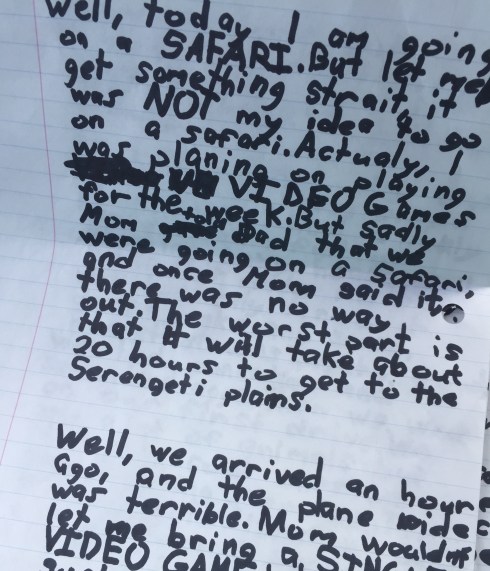 Well, today I am going
on a SAFARI. But let me
get something strait it
was NOT my idea to go
on a safari. Actualy, I
was planing on playing
VIDEO Games
for the week. But sadly
Mom Dad that we
were going on a safari,
and once Mom said it,
there was no way
out. The worst part is
that it will take about
20 hours to get to the
Serengeti plains.
Well, we arrived an hour
ago, and the plane ride
was terrible. Mom wouldn't
let me bring a
VIDEO GAME